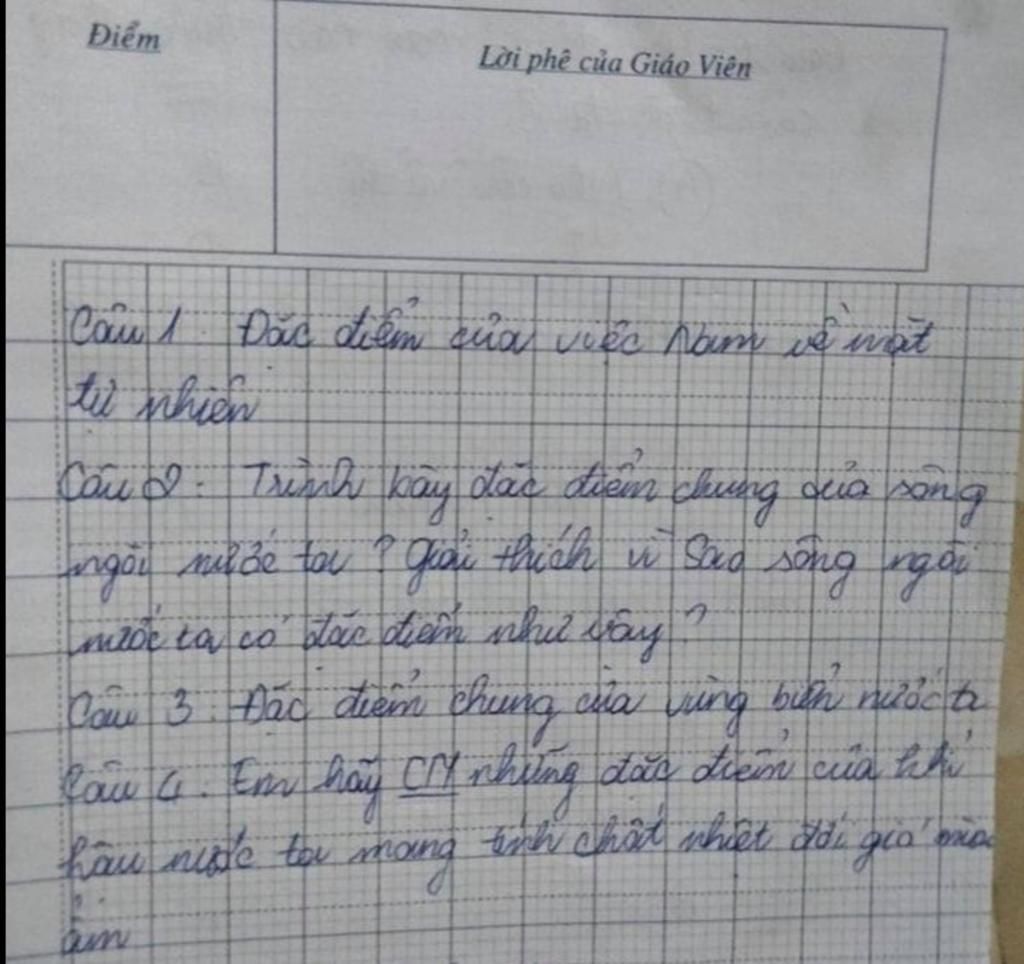 Điểm
Lời phê của Giáo Viên
Câu 1. Đặc điểm của việc Nam về mặt
tự nhiên
Câu 2. Trình bày đặc điểm chung của sông
ngòi nước ta? Giải thích vì sao sông ngòi
nước ta có đặc điểm như vậy?
Câu 3. Đặc điểm chung của vùng biển nước ta
Câu 4. Em hãy CM những đặc điểm của khí
hậu nước ta mang tính chất nhiệt đới gió mùa
ẩm